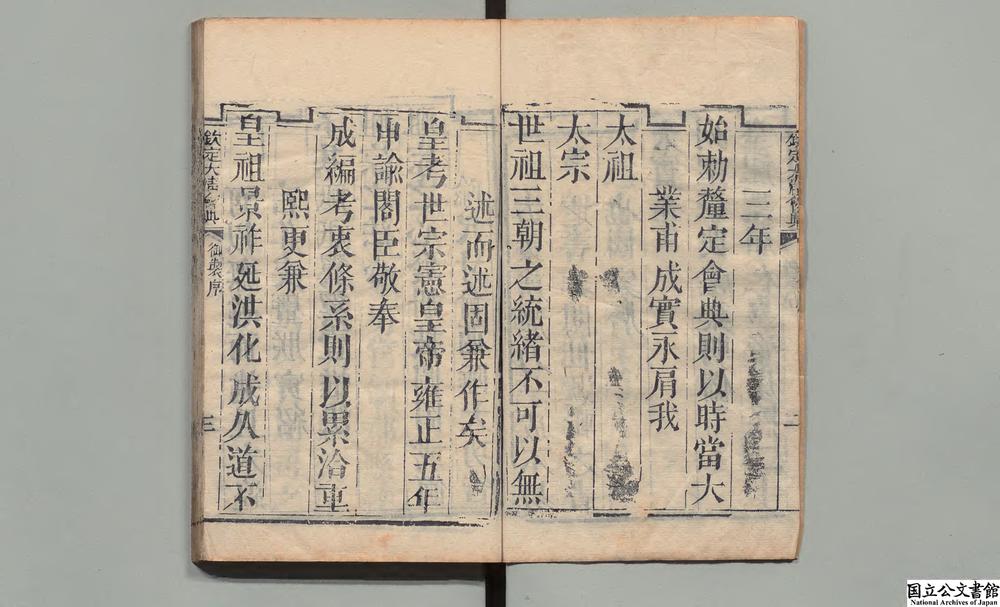 三年
始勅釐定會典則以時當大
業甫成實永肩我
太祖
太宗
世祖三朝之統緒不可以無
述而述固兼作矣
皇考世宗憲皇帝雍正五年
申諭閣臣敬奉
成編考衷條系則以累洽重
熙更兼
皇祖景祚延洪化成久道不
欽定大清會典
二
欽定大清會典
御製序
三
国立公文書館
National Archives of Japan